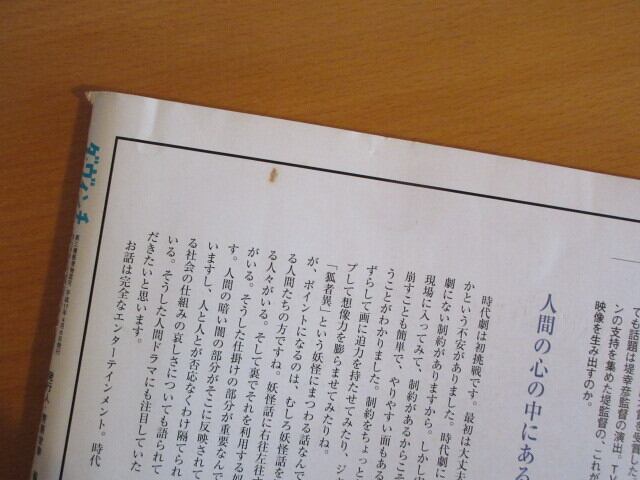 ても話題は堤幸彦監督の演出。TV
ンの支持を集めた堤監督の、これが
映像を生み出すのか。
人間の心の中にある
時代劇は初挑戦です。最初は大丈夫
かという不安がありました。時代劇に
劇にない制約がありますから。しかし
現場に入ってみて、制約があるからこそ
崩すことも簡単で、やりやすい面もある
うことがわかりました。制約をちょっと
ずらして画に迫力を持たせてみたり、ジ
プして想像力を膨らませてみたりね。
「狐者異」という妖怪にまつわる話なんで
が、ポイントになるのは、むしろ妖怪話を
る人間たちの方ですね。妖怪話に右往左往す
る人々がいる。そして裏でそれを利用する
がいる。そうした仕掛けの部分が重要なんで
す。人間の暗い闇の部分がそこに反映されて
いますし、人と人とが否応なくわけ隔てられ
る社会の仕組みの哀しさについても語られて
いる。そうした人間ドラマにも注目していた
だきたいと思います。
お話は完全なエンターテインメント。時代
ダ・ヴィンチ